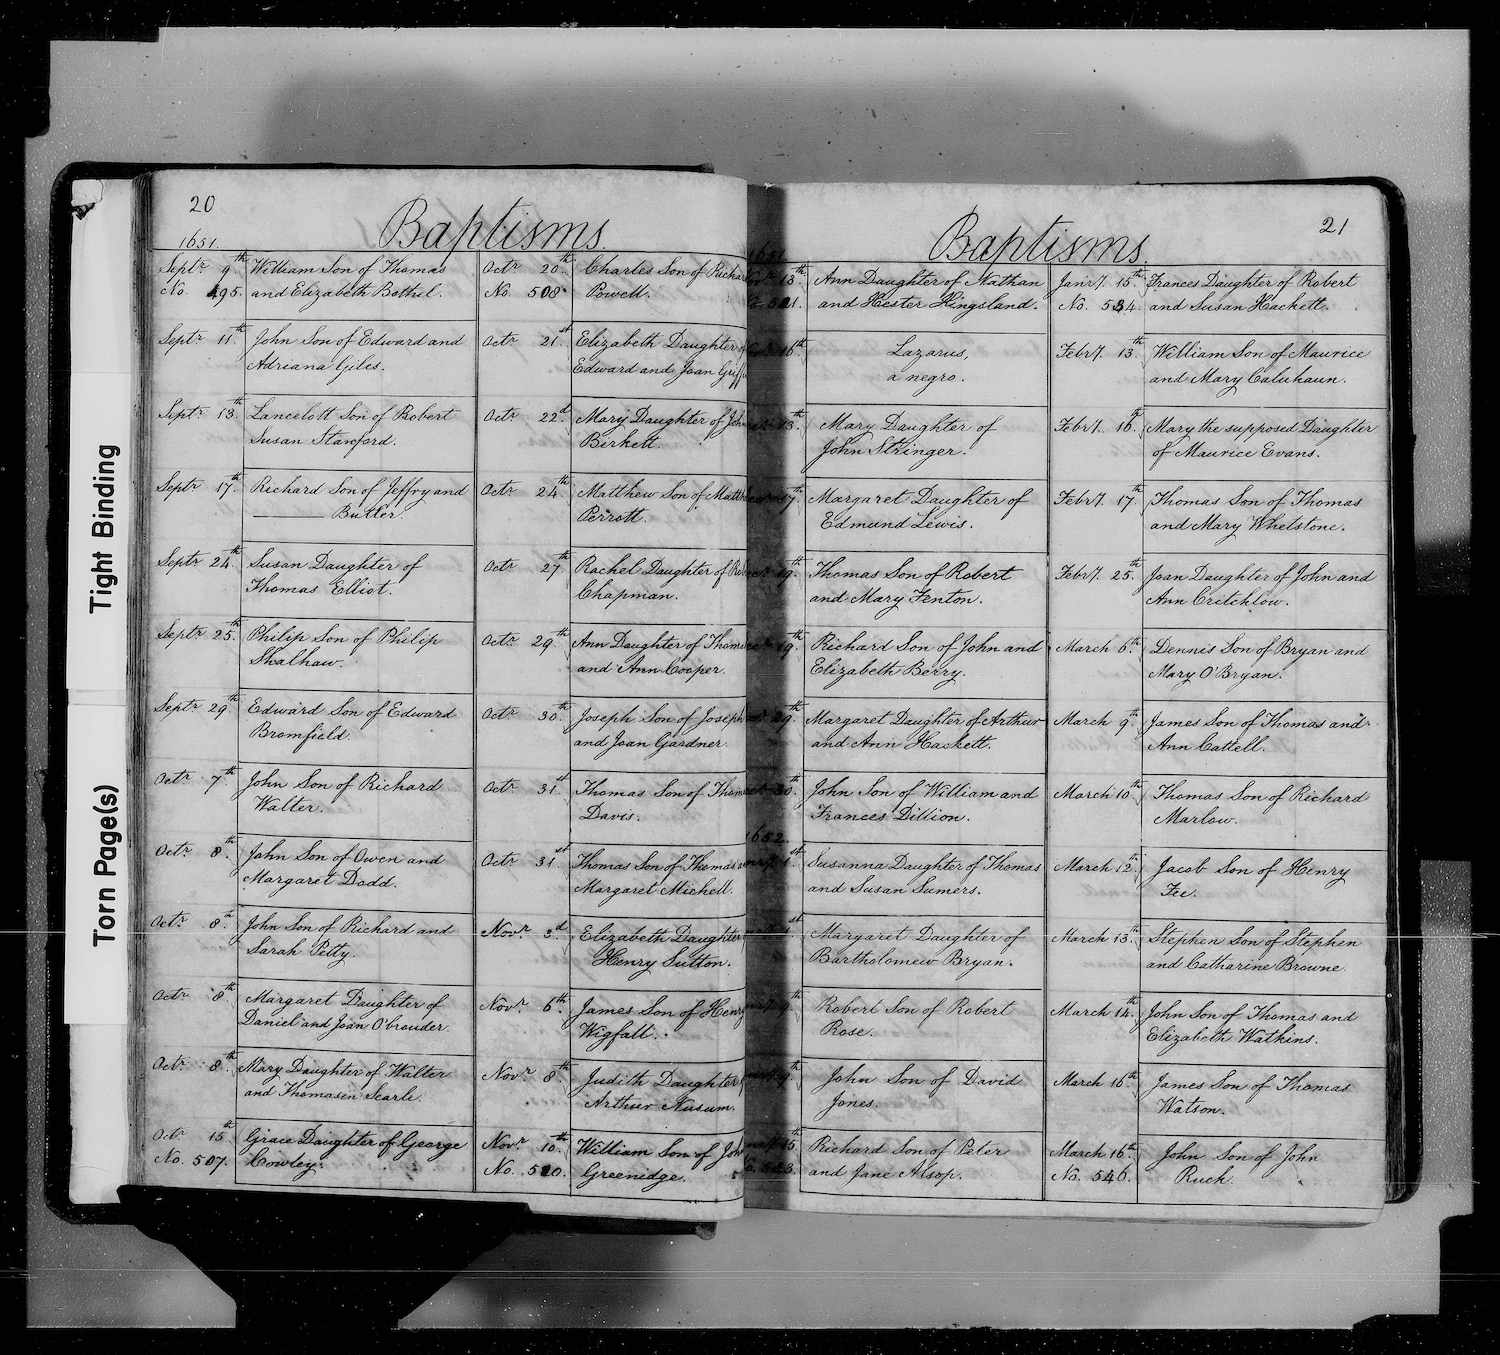 Tight Binding
Torn Page(s)
20
Baptisms.
1651.
Septr. 9th William Son of Thomas
No. 495. and Elizabeth Bothel.
Septr. 11th John Son of Edward and
Adriana Giles.
Septr. 13th Lancelott Son of Robert
Susan Stanford.
Septr. 17th Richard Son of Jeffry and
——— Butler.
Septr. 24th Susan Daughter of
Thomas Elliot.
Septr. 25th Philip Son of Philip
Shalhaw.
Septr. 29th Edward Son of Edward
Bromfield.
Octr. 7th John Son of Richard
Walter.
Octr. 8th John Son of Owen and
Margaret Dodd.
Octr. 8th John Son of Richard and
Sarah Petty.
Octr. 8th Margaret Daughter of
Daniel and Joan O'brouder.
Octr. 8th Mary Daughter of Walter
and Thomasin Searle.
Octr. 15th Grace Daughter of George
No. 507. Cowley.
Octr. 20th Charles Son of Richar
No. 508. Powell.
Octr. 21st Elizabeth Daughter of
Edward and Joan
Octr. 22d Mary Daughter of John
Birkett.
Octr. 24th Matthew Son of Matth
Perrott.
Octr. 27th Rachel Daughter of Ro
Chapman.
Octr. 29th Ann Daughter of Thom
and Ann Cooper.
Octr. 30th Joseph Son of Joseph
and Joan Gardner.
Octr. 31st Thomas Son of Thom
Davis.
Octr. 31st Thomas Son of Thomas
Margaret Michell.
Novr. 3d Elizabeth Daughter
Henry Sutton.
Novr. 6th James Son of Henry
Wigfall.
Novr. 8th Judith Daughter
Arthur Nusum.
Novr. 10th William Son of Joh
No. 520. Greenidge.
21
Baptisms.
1651
13th Ann Daughter of Nathan
521. and Hester Hingsland.
16th Lazarus,
a negro.
13th Mary Daughter of
John Stringer.
17th Margaret Daughter of
Edmund Lewis.
19th Thomas Son of Robert
and Mary Fenton.
19th Richard Son of John and
Elizabeth Berry.
29th Margaret Daughter of Arthur
and Ann Haskett.
30th John Son of William and
Frances Dillion.
1652
1st Susanna Daughter of Thomas
and Susan Sumers.
1st Margaret Daughter of
Bartholomew Bryan.
9th Robert Son of Robert
Rose.
9th John Son of David
Jones.
15th Richard Son of Peter
533. and Jane Alsop.
Janry. 15th Frances Daughter of Robert
No. 534. and Susan Hackett.
Febry. 13th William Son of Maurice
and Mary Caluhaun.
Febry. 16th Mary the supposed Daughter
of Maurice Evans.
Febry. 17th Thomas Son of Thomas
and Mary Whelstone.
Febry. 25th Joan Daughter of John and
Ann Critchlow.
March 6th Dennis Son of Bryan and
Mary O'Bryan.
March 9th James Son of Thomas and
Ann Cattell.
March 10th Thomas Son of Richard
Marlow.
March 12th Jacob Son of Henry
Fee.
March 13th Stephen Son of Stephen
and Catharine Browne
March 14th John Son of Thomas and
Elizabeth Watkins.
March 16th James Son of Thomas
Watson.
March 16th John Son of John
No. 546. Ruck.